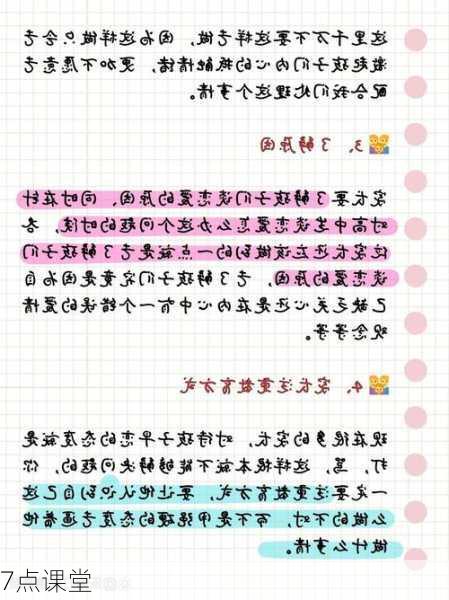 这里千万不要这样去做，因为这样做只会去
激起孩子们内心的叛逆情绪，更加不愿意去
配合我们处理这个事情。
3、了解原因
家长要了解孩子们谈恋爱的原因，同时在针
对高中生谈恋爱怎么办这个问题的时候，各
位家长还应该做到的一点就是去了解孩子们
谈恋爱的原因，去了解孩子们究竟是因为自
己缺乏关心还是在内心中有一个错误的爱情
观念等等。
4、家长注重教育方式
现在很多的家长，对待孩子早恋的态度就是
打，骂，这样根本就不能够解决问题的，你
一定要注重教育方式，要让他认识到自己这
么做的不对，而不是用强硬的态度去逼着他
做什么事情。
7点课堂